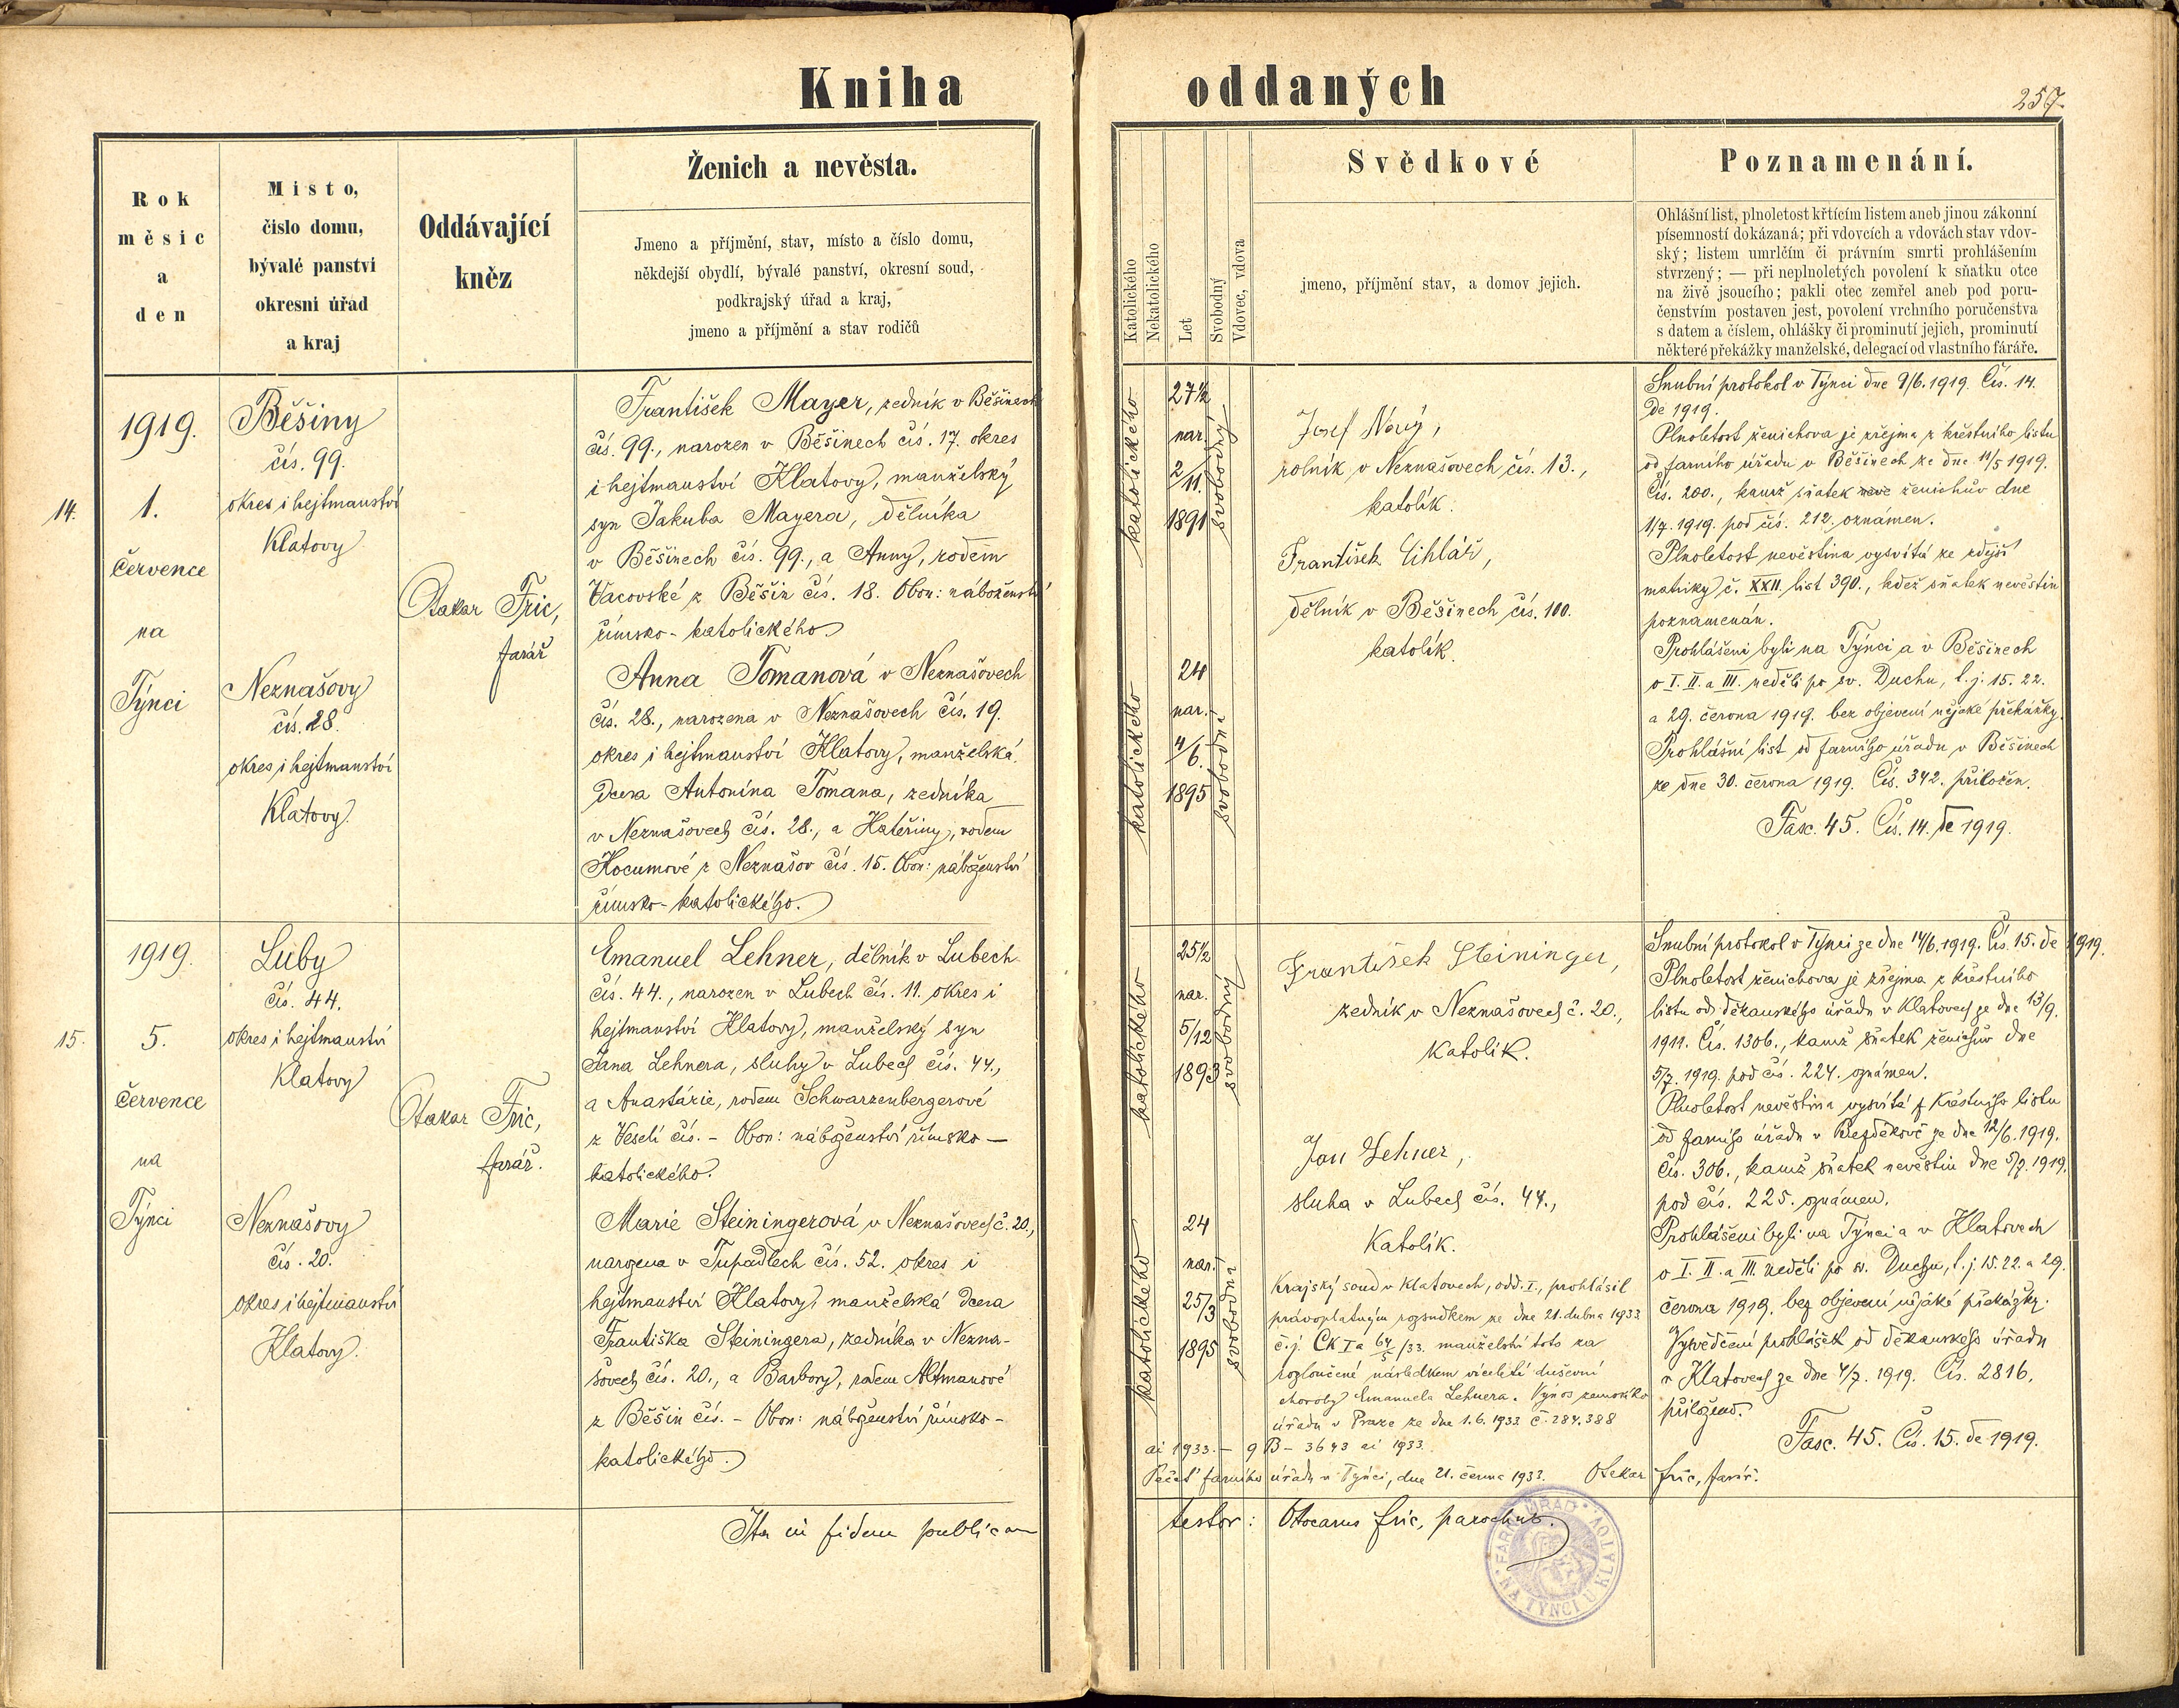 Kniha oddaných
257.
Rok
měsíc
a
den
Místo,
číslo domu,
bývalé panství
okresní úřad
a kraj
Oddávající
kněz
Ženich a nevěsta.
Jmeno a příjmění, stav, místo a číslo domu,
někdejší obydlí, bývalé panství, okresní soud,
podkrajský úřad a kraj,
jmeno a příjmění a stav rodičů
Katolického
Nekatolického
Let
Svobodný
Vdovec, vdova
Svědkové
jmeno, příjmění stav, a domov jejich.
Poznamenání.
Ohlášní list, plnoletost křtícím listem aneb jinou zákonní
písemností dokázaná; při vdovcích a vdovách stav vdov-
ský; listem umrlčím či právním smrti prohlášením
stvrzený; — při neplnoletých povolení k sňatku otce
na živě jsoucího; pakli otec zemřel aneb pod poru-
čenstvím postaven jest, povolení vrchního poručenstva
s datem a číslem, ohlášky či prominutí jejich, prominutí
některé překážky manželské, delegací od vlastního fáráře.
14.
1919.
1.
července
na
Týnci
Běšiny
čís. 99.
okres i hejtmanství
Klatovy
Neznašovy
čís. 28.
okres i hejtmanství
Klatovy.
Otakar Fric,
farář
František Mayer, zedník v Běšinech
čís. 99., narozen v Běšinech čís. 17. okres
i hejtmanství Klatovy, manželský
syn Jakuba Mayera, dělníka
v Běšinech čís. 99., a Anny, rodem
Vacovské z Běšin čís. 18. Obon: náboženství
římsko-katolického.
Anna Tomanová v Neznašovech
čís. 28., narozena v Neznašovech čís. 19.
okres i hejtmanství Klatovy, manželská
dcera Antonína Tomana, zedníka
v Neznašovech čís. 28., a Kateřiny, rodem
Kocumové z Neznašov čís. 15. Obon: náboženství
římsko-katolického.
katolického
27½
nar.
2/11.
1891
svobodný
katolického
24
nar.
4/6.
1895
svobodná
Josef Nový,
rolník v Neznašovech čís. 13.,
katolík.
František Cihlář,
dělník v Běšinech čís. 100.
katolík.
Snubní protokol v Týnci dne 9/6. 1919. Čís. 14.
de 1919.
Plnoletost ženichova je zřejma z křestního listu
od farního úřadu v Běšinech ze dne 11/5 1919.
Čís. 200., kamž sňatek ženichův dne
1/7. 1919. pod čís. 212. oznámen.
Plnoletost nevěstina vysvítá ze zdejší
matriky č. XXII. list 390., kdež sňatek nevěstin
poznamenán.
Prohlášeni byli na Týnci a v Běšinech
o I. II. a III. neděli po sv. Duchu, t. j. 15. 22.
a 29. června 1919. bez objevení nějaké překážky.
Prohlášní list od farního úřadu v Běšinech
ze dne 30. června 1919. Čís. 342. přiložen.
Fasc. 45. Čís. 14. de 1919.
15.
1919.
5.
července
na
Týnci
Luby
čís. 44.
okres i hejtmanství
Klatovy
Neznašovy
čís. 20.
okres i hejtmanství
Klatovy.
Otakar Fric,
farář.
Emanuel Lehner, dělník v Lubech
čís. 44., narozen v Lubech čís. 11. okres i
hejtmanství Klatovy, manželský syn
Jana Lehnera, sluhy v Lubech čís. 44.,
a Anastázie, rodem Schwarzenbergerové
z Veselí čís. – Obon: náboženství římsko –
katolického.
Marie Steiningerová v Neznašovech č. 20.,
narozena v Tupadlech čís. 52. okres i
hejtmanství Klatovy, manželská dcera
Františka Steiningera, zedníka v Nezna-
šovech čís. 20., a Barbory, rodem Altmanové
z Běšin čís. – Obon: náboženství římsko-
katolického.
katolického
25½
nar.
5/12
1893
svobodný
katolického
24
nar.
25/3
1895
svobodná
František Steininger,
zedník v Neznašovech č. 20.,
katolík.
Jan Lehner,
sluha v Lubech čís. 44.,
katolík.
Krajský soud v Klatovech, odd. I., prohlásil
právoplatným rozsudkem ze dne 21. dubna 1933
č. j. Ck I a 64/5 /33. manželství toto za
rozloučené následkem víceleté duševní
choroby Emanuela Lehnera. Výnos zemského
úřadu v Praze ze dne 1. 6. 1933 č. 284.388
ai 1933. – 9 B – 3643 ai 1933.
Pečeť farního úřadu v Týnci, dne 21. června 1933. Otakar Fric, farář.
Snubní protokol v Týnci ze dne 14/6. 1919. Čís. 15. de 1919.
Plnoletost ženichova je zřejma z křestního
listu od děkanského úřadu v Klatovech ze dne 13/9.
1911. Čís. 1306., kamž sňatek ženichův dne
5/7. 1919. pod čís. 224. oznámen.
Plnoletost nevěstina vysvítá z křestního listu
od farního úřadu v Bezděkově ze dne 12/6. 1919.
Čís. 306., kamž sňatek nevěstin dne 5/7. 1919.
pod čís. 225. oznámen.
Prohlášeni byli na Týnci a v Klatovech
o I. II. a III. neděli po sv. Duchu, t. j. 15. 22. a 29.
června 1919. bez objevení nějaké překážky.
Vysvědčení prohlášek od děkanského úřadu
v Klatovech ze dne 4/7. 1919. Čís. 2816.
přiloženo.
Fasc. 45. Čís. 15. de 1919.
Ita in fidem publicam
testor: Otocarus Fric, parochus.
FARNÍ ÚŘAD
NA TÝNCI U KLATOV